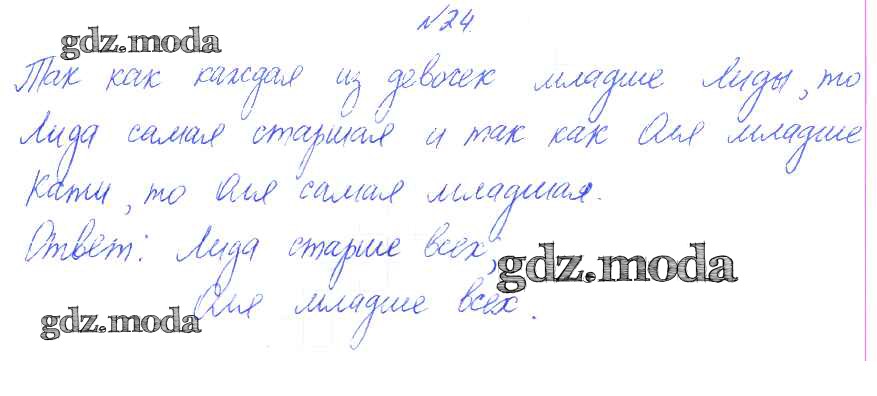 №24.
gdz.moda
Так как каждая из девочек младше Лиды, то
Лида самая старшая и так как Оля младше
Кати, то Оля самая младшая.
Ответ: Лида старше всех;
gdz.moda
Оля младше всех.
gdz.moda